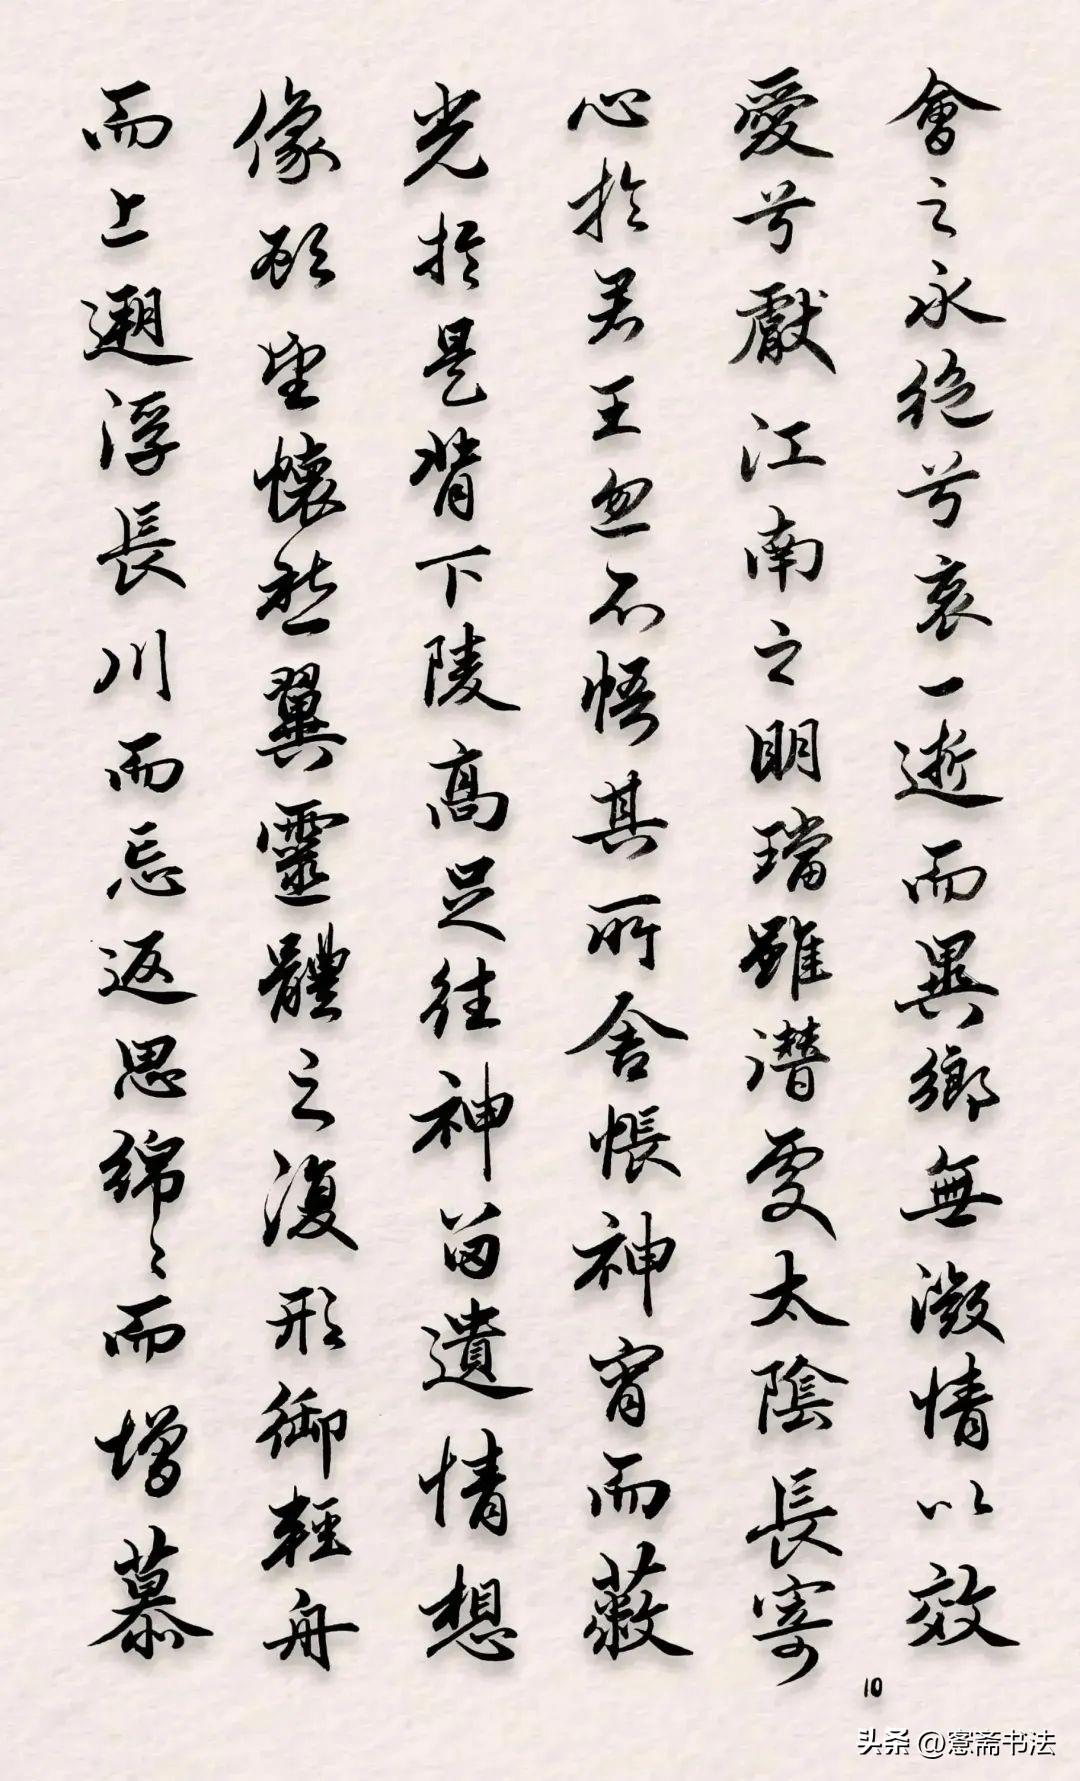 會之永絕兮哀一逝而異鄉無微情以效
愛兮獻江南之明璫雖潛處太陰長寄
心於君王忽不悟其所舍悵神宵而蔽
光於是背下陵高足往神留遺情想
像顧望懷愁冀靈體之復形御輕舟
而上遡浮長川而忘返思綿〻而增慕
10
头条 @窓斋书法